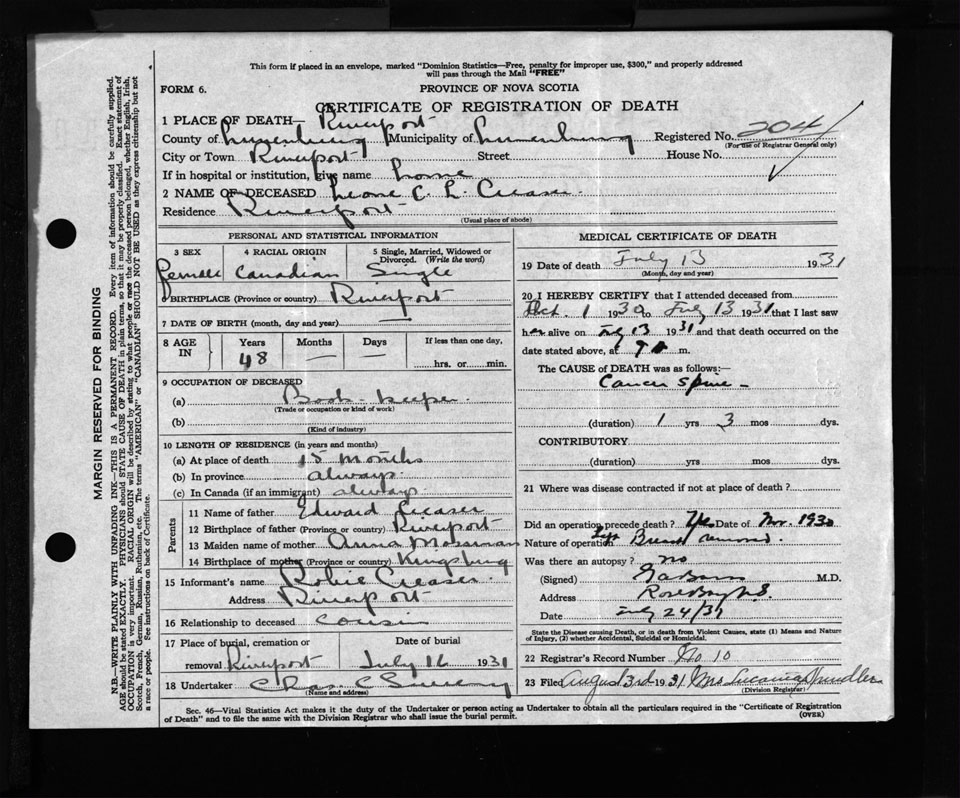 This form if placed in an envelope, marked "Dominion Statistics—Free, penalty for improper use, $300," and properly addressed
will pass through the Mail "FREE"
FORM 6.
PROVINCE OF NOVA SCOTIA
CERTIFICATE OF REGISTRATION OF DEATH
1 PLACE OF DEATH— Riverport
County of Lunenburg Municipality of Lunenburg Registered No. 204
(For use of Registrar General only)
City or Town Riverport Street House No.
If in hospital or institution, give name home
2 NAME OF DECEASED Leone C. L. Creaser
Residence Riverport
(Usual place of abode)
PERSONAL AND STATISTICAL INFORMATION
3 SEX 4 RACIAL ORIGIN 5 Single, Married, Widowed or Divorced. (Write the word)
Female Canadian Single
6 BIRTHPLACE (Province or country) Riverport
7 DATE OF BIRTH (month, day and year) —
8 AGE IN Years Months Days If less than one day,
48 — — hrs. or min.
9 OCCUPATION OF DECEASED
(a) Book-keeper
(Trade or occupation or kind of work)
(b)
(Kind of industry)
10 LENGTH OF RESIDENCE (in years and months)
(a) At place of death 15 months
(b) In province always
(c) In Canada (if an immigrant) always
Parents
11 Name of father Edward Creaser
12 Birthplace of father (Province or country) Riverport
13 Maiden name of mother Anna Mossman
14 Birthplace of mother (Province or country) Kingsburg
15 Informant's name Robie Creaser
Address Riverport
16 Relationship to deceased cousin
17 Place of burial, cremation or removal Riverport
Date of burial July 16 1931
18 Undertaker Chas C
(Name and address)
MEDICAL CERTIFICATE OF DEATH
19 Date of death July 13 1931
(Month, day and year)
20 I HEREBY CERTIFY that I attended deceased from
Oct. 1 1930 to July 13 1931 that I last saw
her alive on July 13 1931 and that death occurred on the
date stated above, at 9 a m.
The CAUSE of DEATH was as follows:—
Cancer spine —
(duration) 1 yrs 3 mos dys.
CONTRIBUTORY
(duration) yrs mos dys.
21 Where was disease contracted if not at place of death?
Did an operation precede death? Yes Date of Nov. 1930
Nature of operation Left Breast removed.
Was there an autopsy? no
(Signed) M.D.
Address Rose Bay N.S.
Date July 24/31
State the Disease causing Death, or in death from Violent Causes, state (1) Means and Nature
of Injury, (2) whether Accidental, Suicidal or Homicidal.
22 Registrar's Record Number No 10
23 Filed August 3rd 1931 Mrs
(Division Registrar)
Sec. 46—Vital Statistics Act makes it the duty of the Undertaker or person acting as Undertaker to obtain all the particulars required in the "Certificate of Registration
of Death" and to file the same with the Division Registrar who shall issue the burial permit.
(OVER)
MARGIN RESERVED FOR BINDING
N.B.—WRITE PLAINLY WITH UNFADING INK—THIS IS A PERMANENT RECORD. Every item of information should be carefully supplied.
AGE should be stated EXACTLY. PHYSICIANS should STATE CAUSE OF DEATH in plain terms, so that it may be properly classified. Exact statement of
OCCUPATION is very important. RACIAL ORIGIN will be described by stating to what people or race the deceased person belonged, whether English, Irish,
Scotch, French, German, Russian, Ruthenian, etc. The terms "AMERICAN" or "CANADIAN" SHOULD NOT BE USED as they express citizenship but not
a race or people. See instructions on back of Certificate.